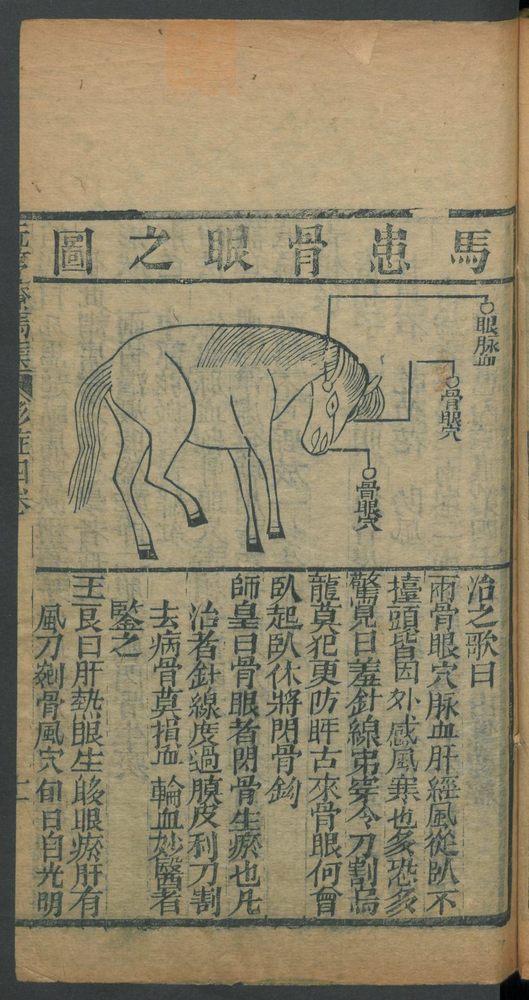 馬患骨眼之圖
眼脉血
骨眼穴
骨眼穴
治之歌曰
兩骨眼穴脉血肝經風從臥不
擡頭皆因外感風寒也多恐多
驚見日羞針線串穿令刀割烏
龍莫犯更防睚古來骨眼何曾
臥起臥休將閃骨鈎
師皇曰骨眼者閃骨生瘀也凡
治者針線度過膜皮利刀割
去病骨莫損血輪血妙醫者
鑒之
王良曰肝熱眼生眵眼瘀肝有
風刀剜骨風穴旬日自光明